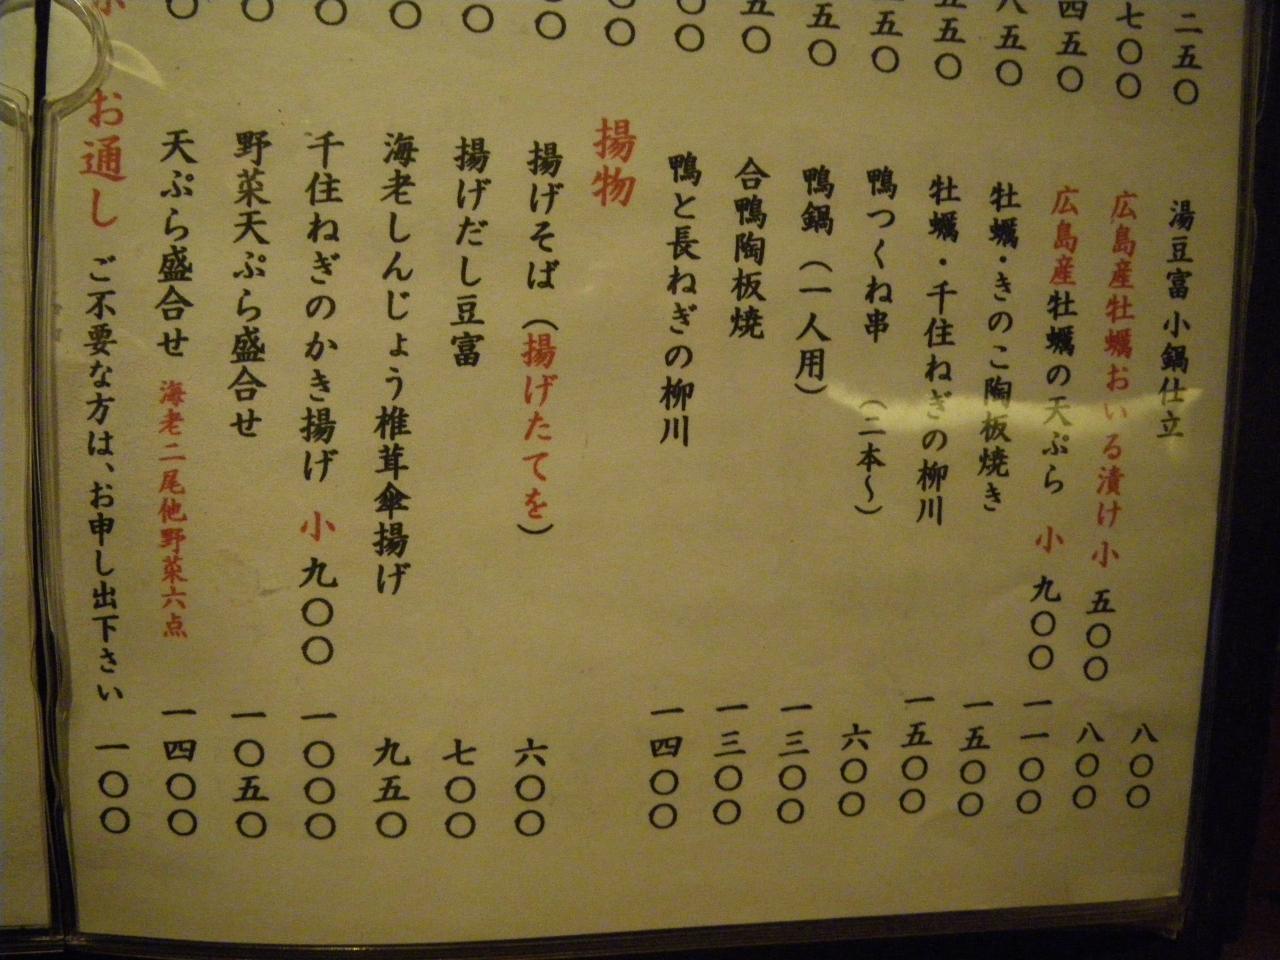 二五〇
七〇〇
四五〇
八五〇
五五〇
五〇
五〇
五〇
湯豆富小鍋仕立 八〇〇
広島産牡蠣おいる漬け 小 五〇〇 八〇〇
広島産牡蠣の天ぷら 小 九〇〇 一一〇〇
牡蠣・きのこ陶板焼き 一五〇〇
牡蠣・千住ねぎの柳川 一五〇〇
鴨つくね串 (二本〜) 六〇〇
鴨鍋(一人用) 一三〇〇
合鴨陶板焼 一三〇〇
鴨と長ねぎの柳川 一四〇〇
揚物
揚げそば(揚げたてを) 六〇〇
揚げだし豆富 七〇〇
海老しんじょう椎茸傘揚げ 九五〇
千住ねぎのかき揚げ 小 九〇〇 一〇〇〇
野菜天ぷら盛合せ 一〇五〇
天ぷら盛合せ 海老二尾他野菜六点 一四〇〇
お通し ご不要な方は、お申し出下さい 一〇〇